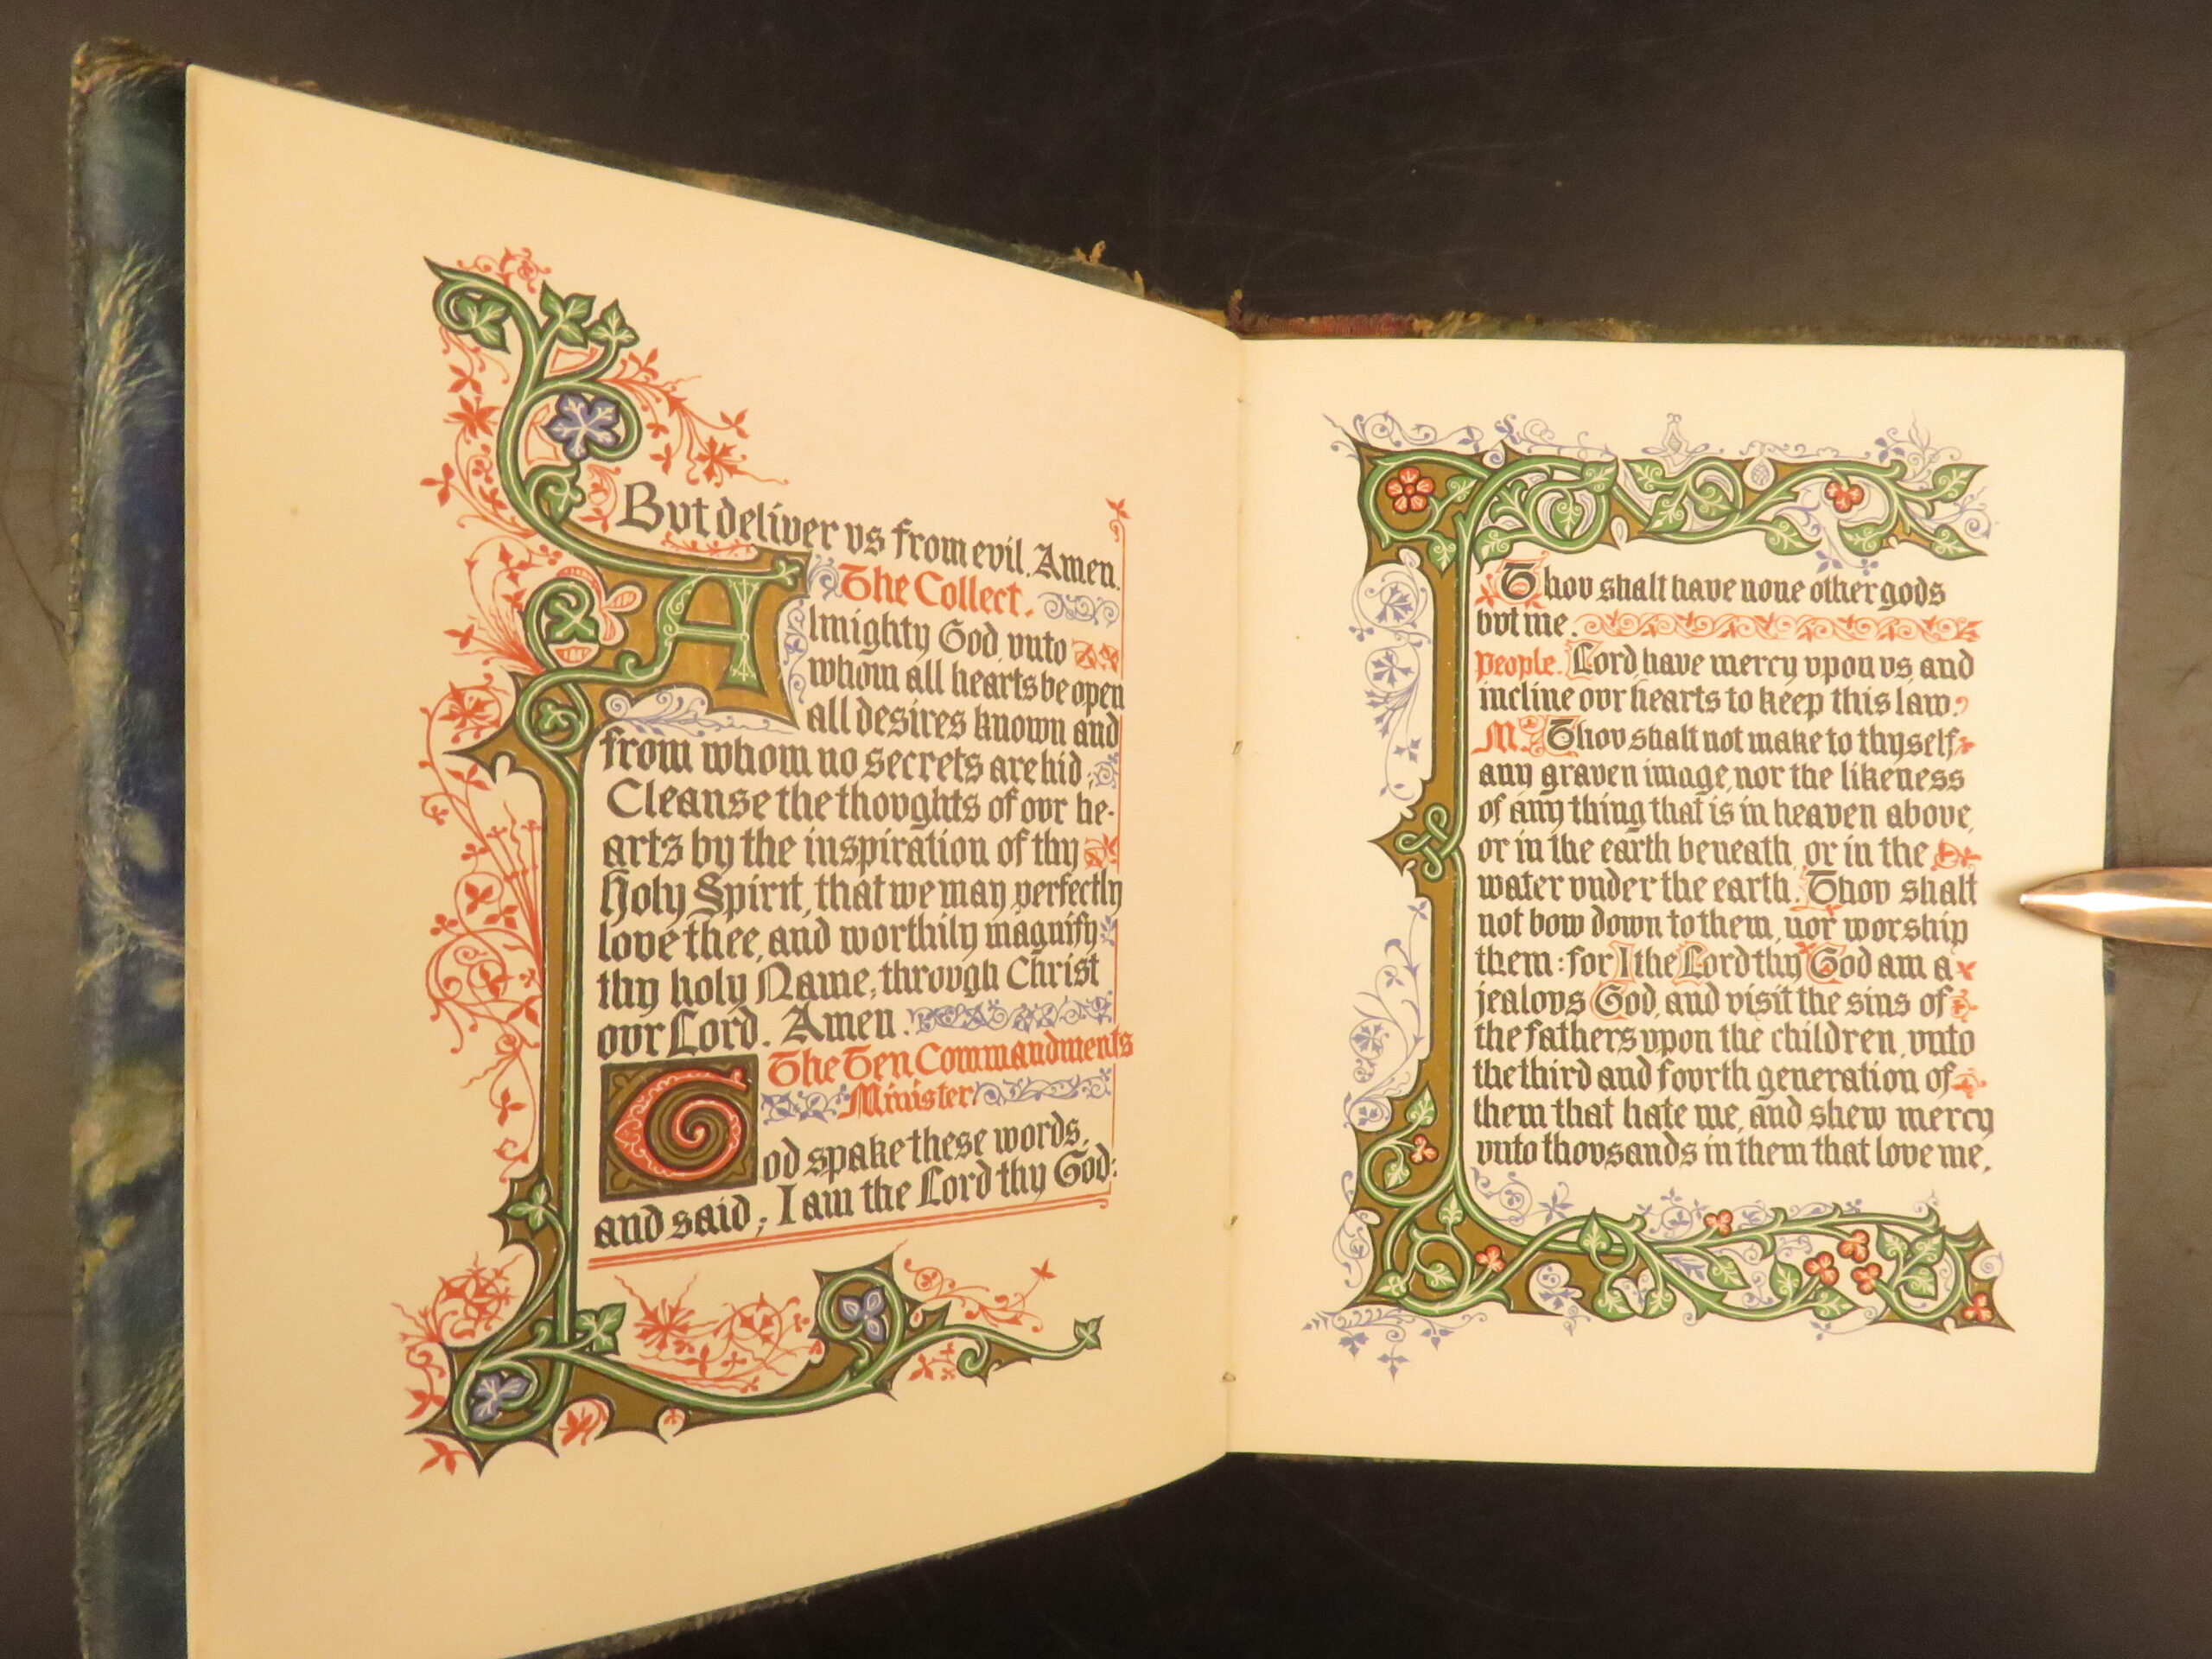 But deliver vs from evil. Amen.
The Collect.
Almighty God, vnto
whom all hearts be open
all desires known and
from whom no secrets are hid;
Cleanse the thovghts of ovr he-
arts by the inspiration of thy
Holy Spirit, that we may perfectly
love thee, and worthily magnify
thy holy Name; throvgh Christ
ovr Lord. Amen.
The Ten Commandments
Minister
God spake these words,
and said; I am the Lord thy God:
Thov shalt have none other gods
bvt me.
People. Lord, have mercy vpon vs, and
incline ovr hearts to keep this law.
M. Thov shalt not make to thyself
any graven image, nor the likeness
of any thing that is in heaven above,
or in the earth beneath, or in the
water vnder the earth. Thov shalt
not bow down to them, nor worship
them: for I the Lord thy God am a
jealovs God, and visit the sins of
the fathers vpon the children, vnto
the third and fovrth generation of
them that hate me, and shew mercy
vnto thovsands in them that love me,